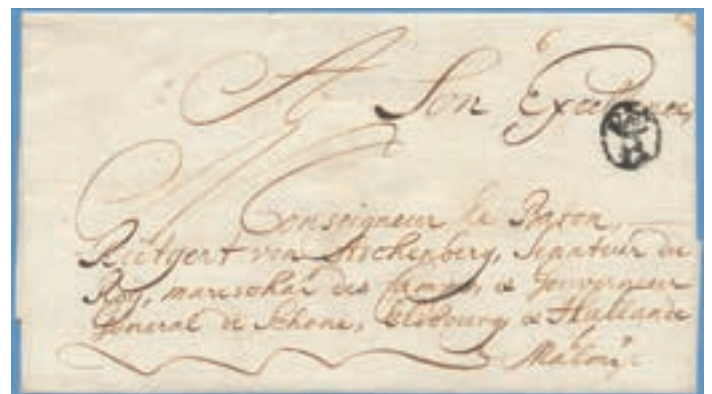 6
A Son Excellence,
Monseigneur le Baron
Rütgert von Aschenberg, Senateur du
Roy, mareschal des camps, & Gouverneur
General de Schone, & Hallande
Malmö